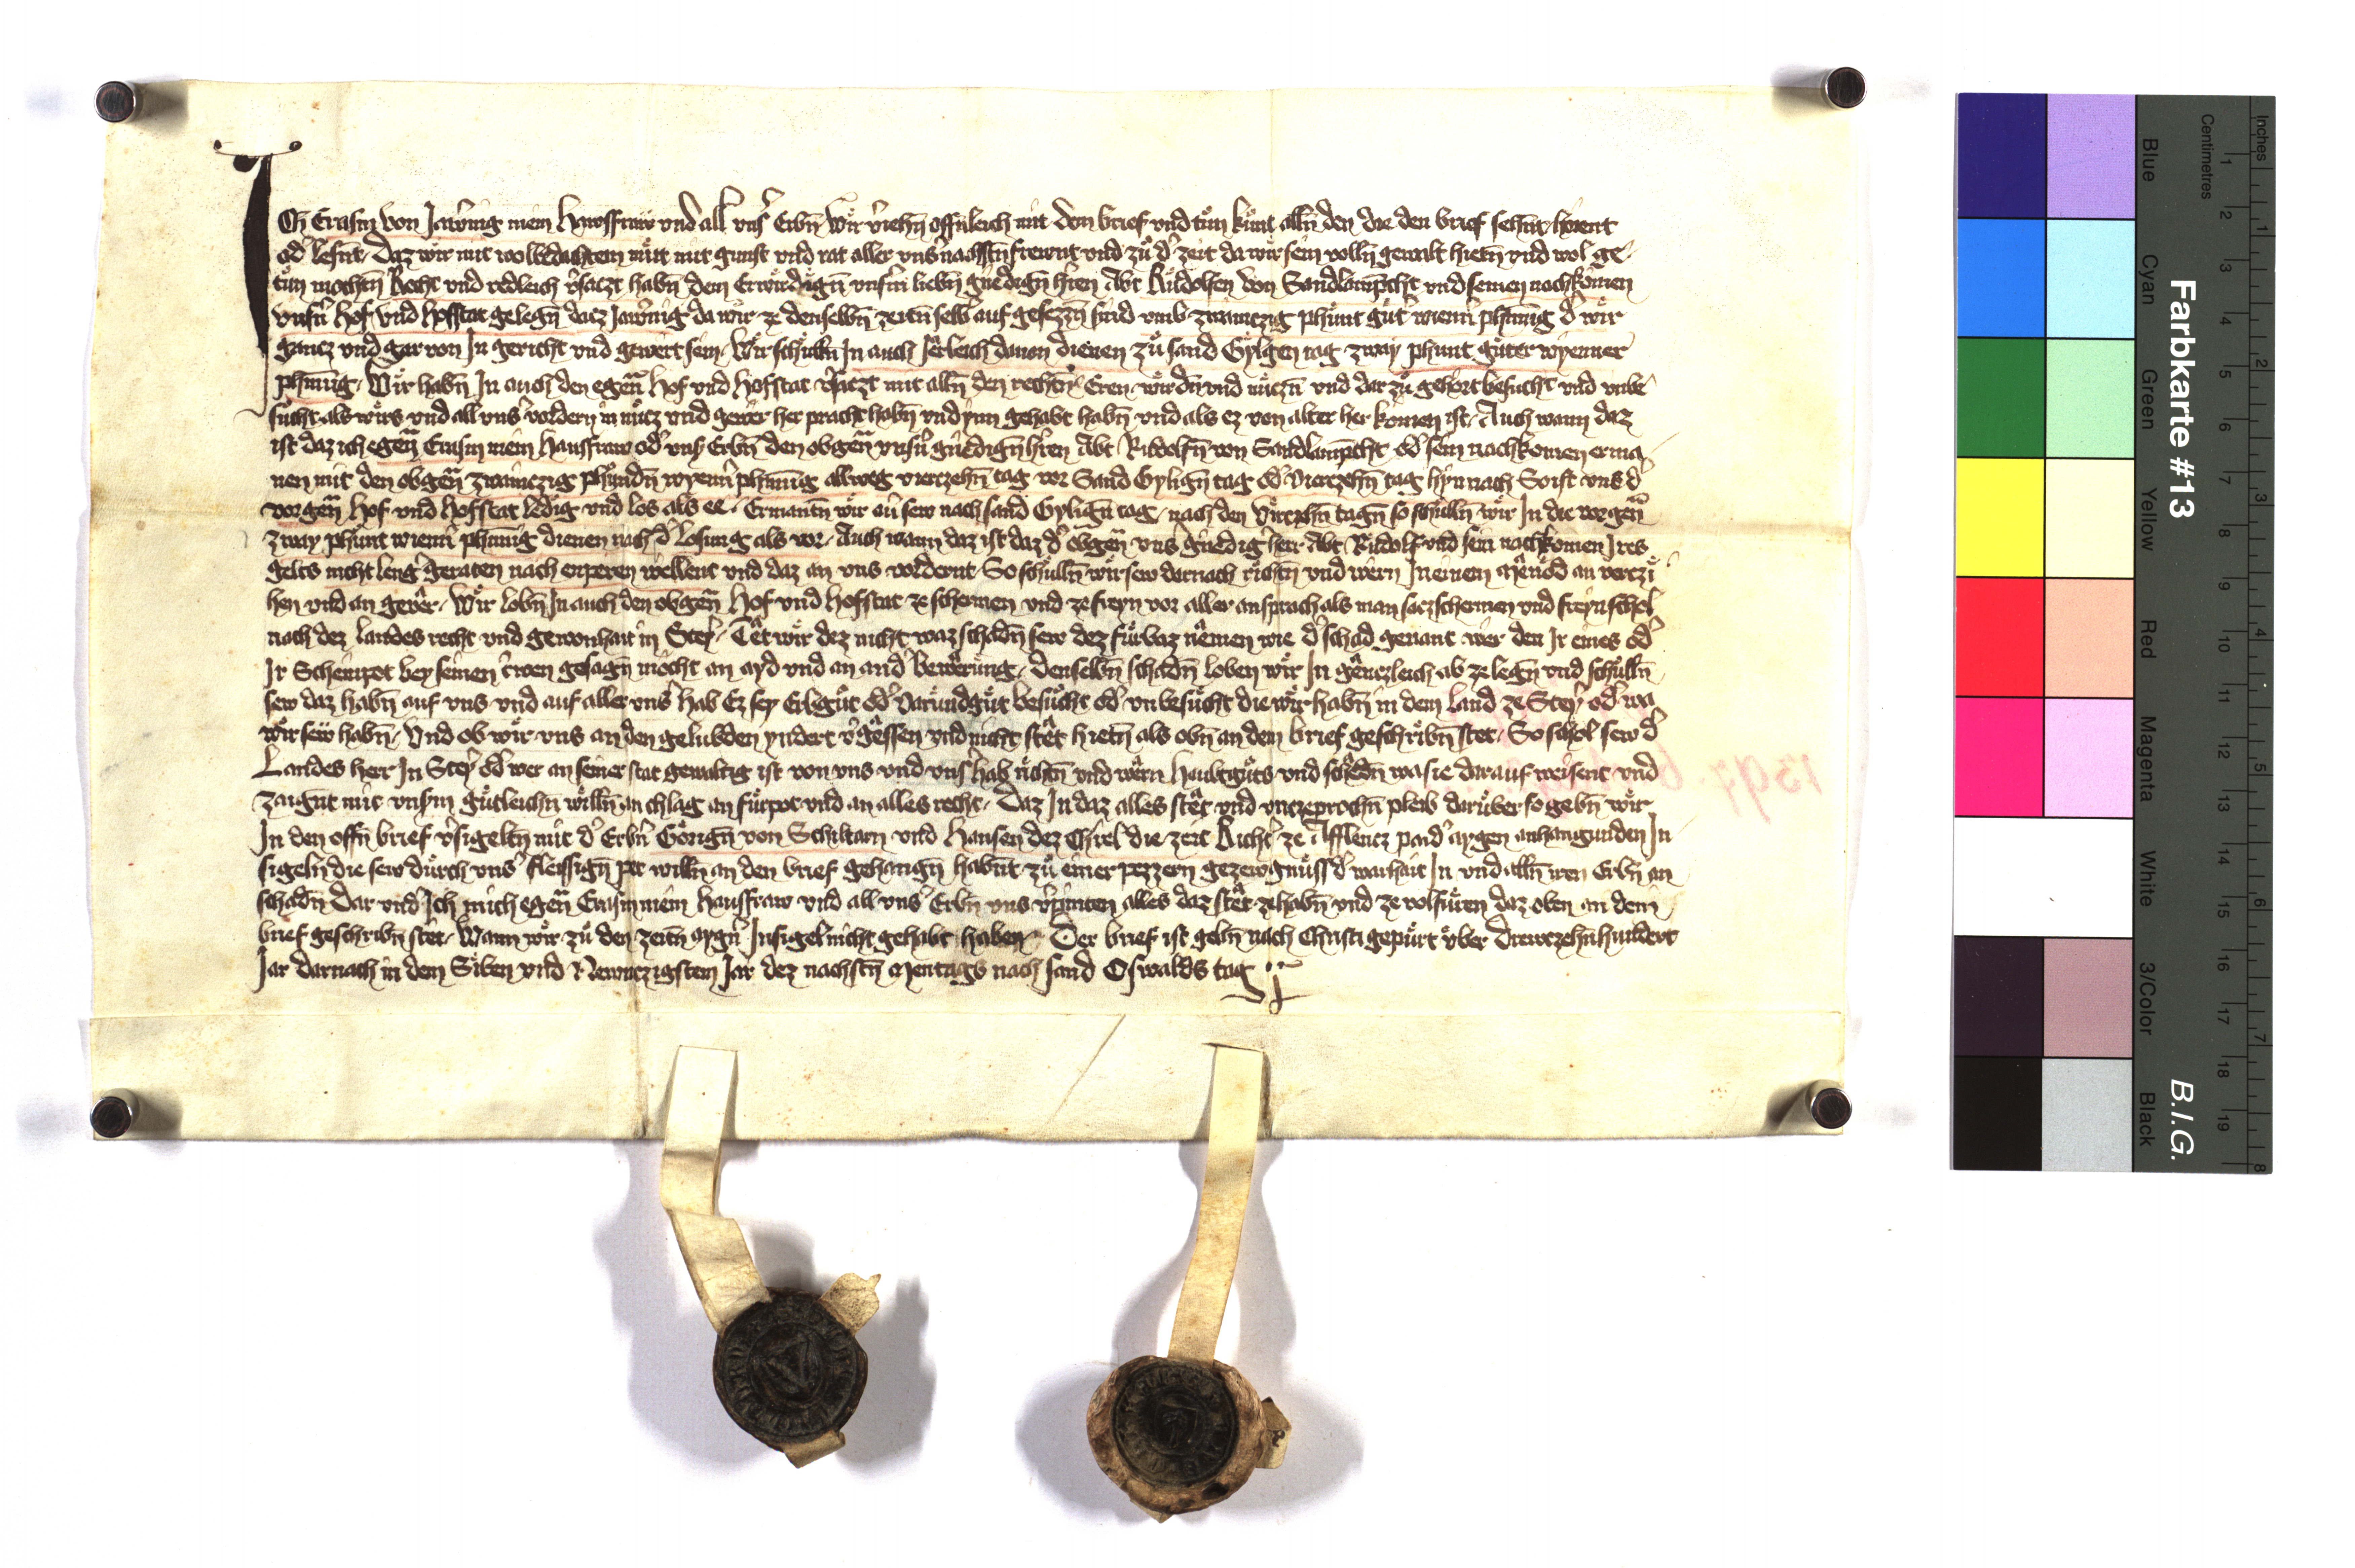 Ich Erasm von Jarnig mein Hawsfraw vnd all vns̉ Erbn̄ Wir v̉iehn̄ offnleich mit dem brief vnd tůn kůnt alln̄ den die den brief sehnt hörent
od̉ lesnt, Daz wir mit wolbedachtem můt mit gunst vnd rat aller vns̉ nachstn̄ frewnt vnd zů d̉ zeit da wir sein volln̄ gewalt hietn̄ vnd wol ge-
tůn mochtn̄ Recht vnd redleich v̉saczt habn̄ dem Erwirdign̄ vnsm̉ liebn̄ gnedign̄ hren Abt Růdolfen von Sandlamp̄cht vnd seinen nachkomen
vnsn̉ Hof vnd Hofstat gelegn̄ dacz Jarnig da wir ze denselbn̄ zeitn̄ selb auf gesezzn̄ sind vmb zwainczig phůnt gůt wienn̉ phen̄nig d̉ wir
gancz vnd gar von In gericht vnd gewert sein, Wir schůlln̄ In auch Jerleich dauon dienen zů sand Gylgen tag zway phunt gůter wyenner
phen̄nig, Wir habn̄ In auch den egen̄ Hof vnd Hofstat v̉saczt mit alln̄ den rechtn̄ Eren wirdn̄ vnd nůczn̄ vnd dar zů gehört besucht vnd vnbe-
sůcht als wirs vnd all vns̉ vordern in nůcz vnd gewer her pracht habn̄ vnd ynn gehabt habn̄ vnd als ez von alter her komen ist, Auch wann daz
ist daz ich egen̄ Erasm mein Hausfraw od̉ vns̉ Erbn̄ den obgen̄ vnsn̉ gnedign̄ hren Abt Rudolfn̄ von Sandlamp̄cht od̉ sein nachkomen erma-
nen mit den obgen̄ zwainczig phůndn̄ wyenn̉ phen̄nig allweg vierzehn̄ tag vor Sand Gylign̄ tag od̉ vierzehn̄ tag hin nach So ist vns d̉
vorgen̄ Hof vnd Hofstat ledig vnd los als ee, Ermantn̄ wir an̉ sew nach sand Gylign̄ tag nach den virczehn̄ tagn̄ so schulln̄ wir In die vorgen̄
zway phůnt wienn̉ phen̄nig dienen nach d̉ losung als vor, Auch wann daz ist daz d̉ obgen̄ vns̉ gnedig herr Abt Rudolf vnd sein nachkomen Ires
gelts nicht leng geraten nach enperen wellent vnd daz an vns vordernt, So schulln̄ wir sew darnach richtn̄ vnd wern In einem Mened an verczi-
hen vnd an geuer, Wir lobn̄ In auch den obgen̄ Hof vnd Hofstat ze schermen vnd ze freyn vor aller ansprach als man saczschermen vnd freyn schol
nach dez landes recht vnd gewonhait in Steỷ, Tet wir dez nicht waz schadn̄ sew dez fůrbaz nemen wie d̉ schad genant wer den Ir eines od̉
Ir Scheinpot bey seinen trwen gesagn̄ mocht an ayd vnd an and̉ bewerung, denselbn̄ schadn̄ loben wir In genczleich ab ze legn̄ vnd schulln̄
sew daz habn̄ auf vns vnd auf aller vns̉ hab Ez sey Erbgůt od̉ Varundgůt besůcht od̉ vnbesůcht die wir habn̄ in dem land ze Steỷ od̉ wa
wir sew habn̄, Vnd ob wir vns an den gelubden yndert v̉gessen vnd nicht stet hietn̄ als obn̄ an dem brief geschribn̄ stet, So schol sew d̉
Landes herr In Steỷ od̉ wer an seiner stat gewaltig ist von vns vnd vns̉ hab richtn̄ vnd wern haubtgůts vnd schedn̄ wa sie darauf weisent vnd
zaignt mit vnsm̉ gůtleichn̄ willn̄ an chlag an fůrpot vnd an alles recht, Daz In daz alles stet vnd vnczeprochn̄ pleib darůber so gebn̄ wir
In den offn̄ brief v̉sigeltn̄ mit d̉ Erbn̉ Görign̄ von Schiltarn vnd Hansen dez Chrel die zeit Richt̉ ze Afflencz paid̉ aygen anhangunden In-
sigeln die sew durch vns̉ fleissign̄ pet willn̄ an den brief gehangn̄ habnt zů einer pezzern gezewgnůss d̉ warhait In vnd alln̄ iren Erbn̄ an
schadn̄ Dar vnd̉ Ich mich egen̄ Erasm mein Hausfraw vnd all vns̉ Erbn̄ vns v̉pinten alles daz stet ze habn̄ vnd ze volfůren daz oben an dem
brief geschribn̄ stet, Wann wir zů den zeitn̄ aygn̉ Insigel nicht gehabt haben, Der brief ist gebn̄ nach Christi gepůrt vber drewczehn̄hundert
Jar darnach in dem Siben vnd Newnczigsten Jar dez nachstn̄ Mentags nach sand Oswalds tag
1397
Farbkarte #13
B.I.G.
Inches
Centimetres
1 2 3 4 5 6 7 8 9 10 11 12 13 14 15 16 17 18 19
1 2 3 4 5 6 7 8
Blue
Cyan
Green
Yellow
Red
Magenta
White
3/Color
Black